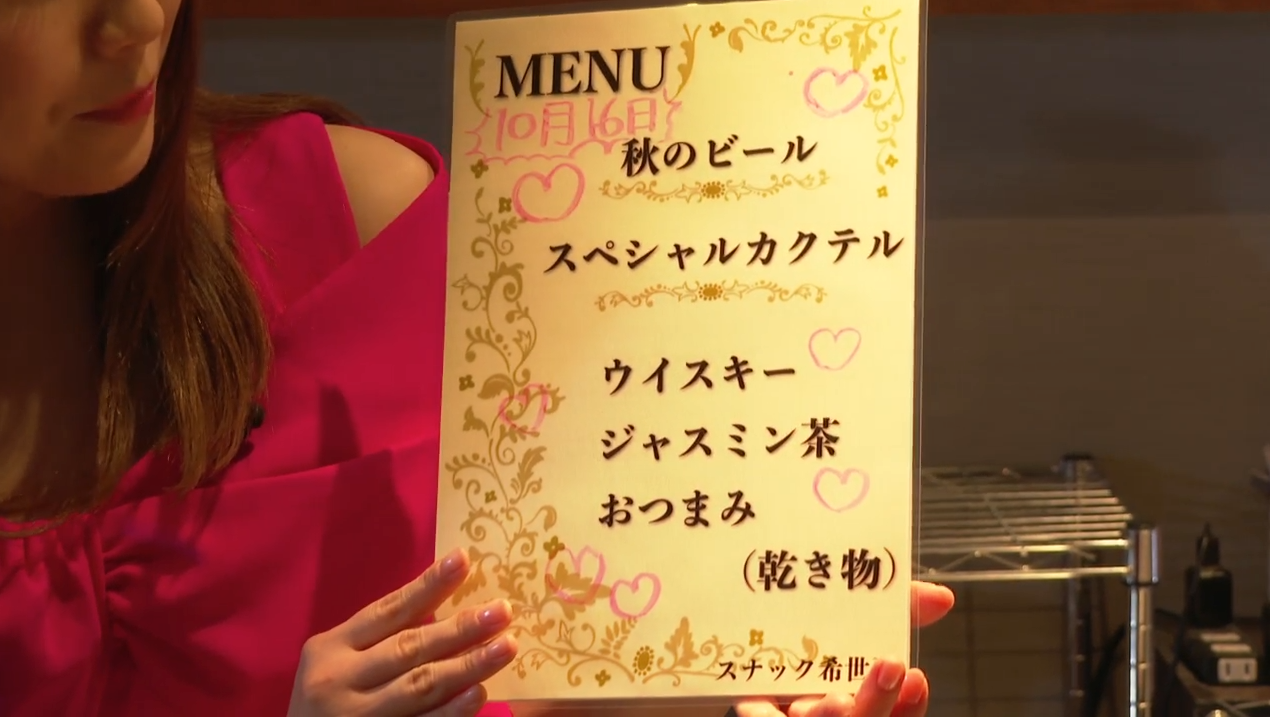 MENU
10月16日
秋のビール
スペシャルカクテル
ウイスキー
ジャスミン茶
おつまみ
(乾き物)
スナック希世